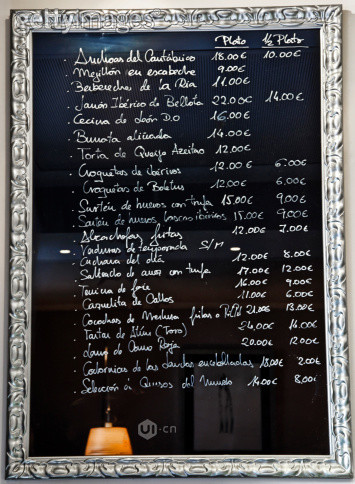 gettyimages
Plato ½ Plato
· Anchoas del Cantábrico 18.00€ 10.00€
· Mejillón en escabeche 9.00€
· Berberechos de la Ria 11.00€
· Jamón Ibérico de Bellota 22.00€ 14.00€
· Cecina de León D.O 16.00€
· Burrata aliciada 14.00€
· Torta de Queijo Azeitao 12.00€
· Croquetas de ibéricos 12.00€ 6.00€
· Croquetas de Boletus 12.00€ 6.00€
· Sartén de huevos con trufa 15.00€ 9.00€
· Sartén de huevos, ibéricos 15.00€ 9.00€
· Alcachofas fritas 12.00€ 7.00€
· Verduras de temporada S/M
· Cuchara del día 12.00€ 8.00€
· Salteado de con trufa 17.00€ 12.00€
· Terrina de foie 16.00€ 9.00€
· Cazuelita de Callos 11.00€ 6.00€
· Cocochas de Merluza fritas o Pil Pil 21.00€ 13.00€
· Tartar de Atún (Toro) 24.00€ 14.00€
· Lomo de Roja 20.00€ 12.00€
· de las encebolladas 18.00€ 2.00€
· Selección de Quesos del Mundo 14.00€ 8.00
UI·cn